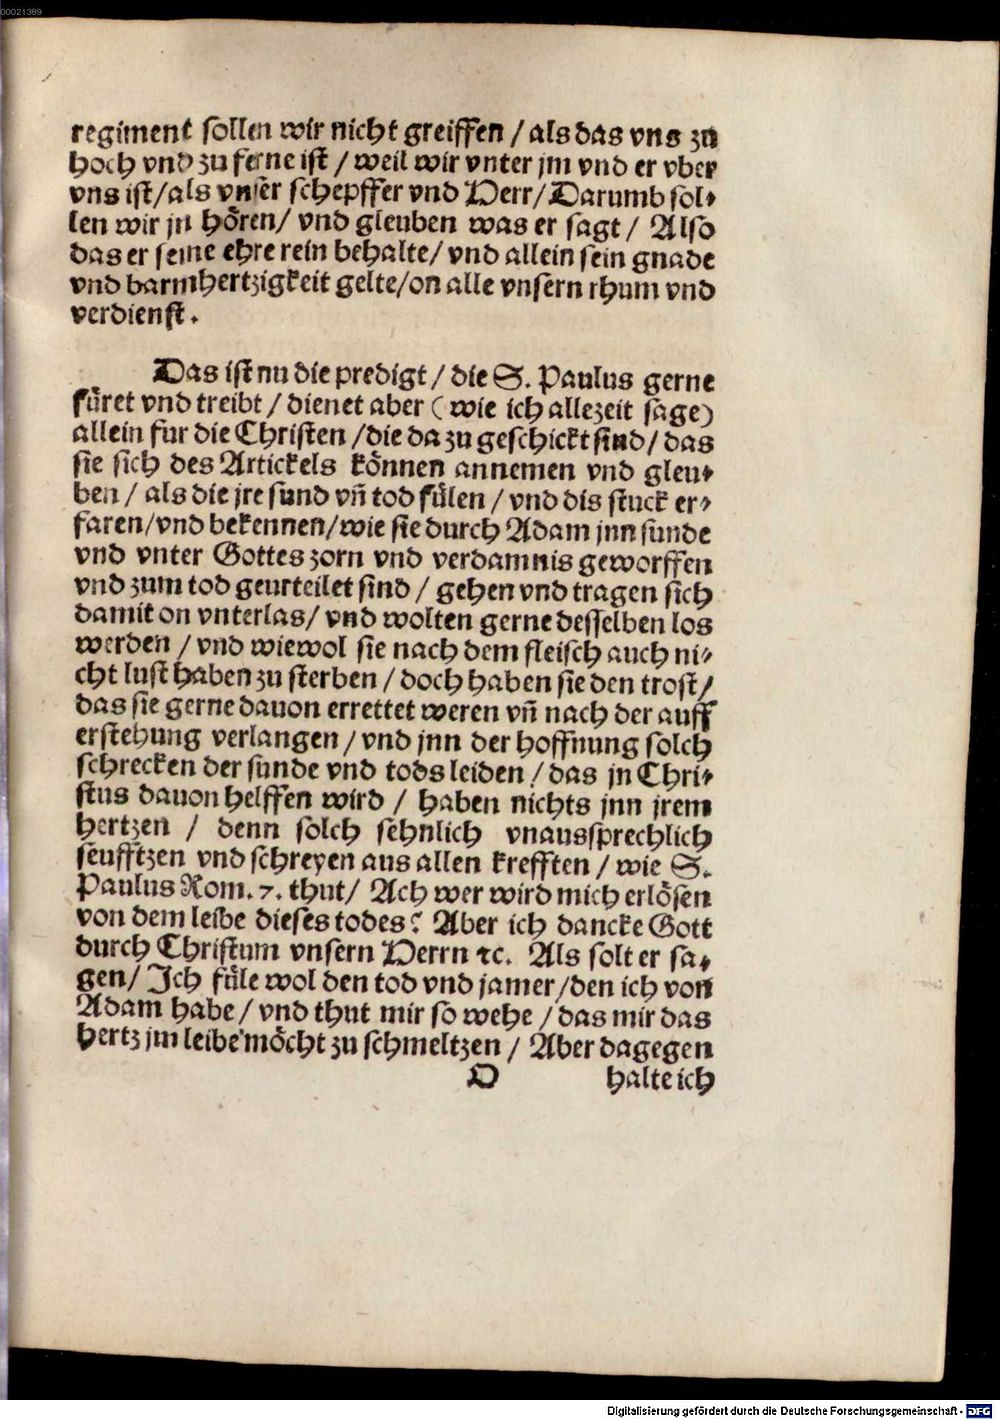 00021389
regiment sollen wir nicht greiffen / als das vns zu
hoch vnd zu ferne ist / weil wir vnter jm vnd er vber
vns ist / als vnser schepffer vnd Herr / Darumb sol⸗
len wir jn hören / vnd gleuben was er sagt / Also
das er seine ehre rein behalte / vnd allein sein gnade
vnd barmhertzigkeit gelte / on alle vnsern rhum vnd
verdienst.
Das ist nu die predigt / die S. Paulus gerne
füret vnd treibt / dienet aber ( wie ich allezeit sage)
allein fur die Christen / die da zu geschickt sind / das
sie sich des Artickels können annemen vnd gleu⸗
ben / als die jre sund vñ tod fülen / vnd dis stuck er⸗
faren / vnd bekennen / wie sie durch Adam jnn sunde
vnd vnter Gottes zorn vnd verdamnis geworffen
vnd zum tod geurteilet sind / gehen vnd tragen sich
damit on vnterlas / vnd wolten gerne desselben los
werden / vnd wiewol sie nach dem fleisch auch ni⸗
cht lust haben zu sterben / doch haben sie den trost /
das sie gerne dauon errettet weren vñ nach der auff
erstehung verlangen / vnd jnn der hoffnung solch
schrecken der sunde vnd tods leiden / das jn Chri⸗
stus dauon helffen wird / haben nichts jnn jrem
hertzen / denn solch sehnlich vnaussprechlich
seufftzen vnd schreyen aus allen krefften / wie S.
Paulus Rom. 7. thut / Ach wer wird mich erlösen
von dem leibe dieses todes? Aber ich dancke Gott
durch Christum vnsern Herrn ꝛc. Als solt er sa⸗
gen / Ich füle wol den tod vnd jamer / den ich von
Adam habe / vnd thut mir so wehe / das mir das
hertz jm leibe möcht zu schmeltzen / Aber dagegen
D halte ich
Digitalisierung gefördert durch die Deutsche Forschungsgemeinschaft - DFG